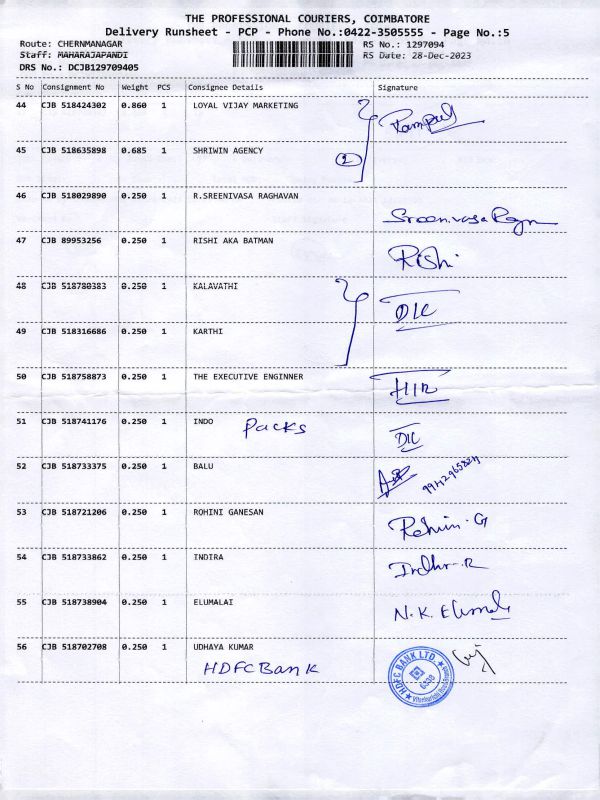 THE PROFESSIONAL COURIERS, COIMBATORE
Delivery Runsheet - PCP - Phone No.:0422-3505555 - Page No.:5
Route: CHERNMANAGAR RS No.: 1297094
Staff: MAHARAJAPANDI RS Date: 28-Dec-2023
DRS No.: DCJB129709405
S No Consignment No Weight PCS Consignee Details Signature
44 CJB 518424302 0.860 1 LOYAL VIJAY MARKETING
45 CJB 518635898 0.685 1 SHRIWIN AGENCY 2
46 CJB 518029890 0.250 1 R.SREENIVASA RAGHAVAN
Sreenivasa
47 CJB 89953256 0.250 1 RISHI AKA BATMAN Rishi
48 CJB 518780383 0.250 1 KALAVATHI DIC
49 CJB 518316686 0.250 1 KARTHI
50 CJB 518758873 0.250 1 THE EXECUTIVE ENGINNER
51 CJB 518741176 0.250 1 INDO Packs DIC
52 CJB 518733375 0.250 1 BALU
53 CJB 518721206 0.250 1 ROHINI GANESAN
54 CJB 518733862 0.250 1 INDIRA
55 CJB 518738904 0.250 1 ELUMALAI N.K.
56 CJB 518702708 0.250 1 UDHAYA KUMAR
HDFC Bank HDFC BANK LTD.